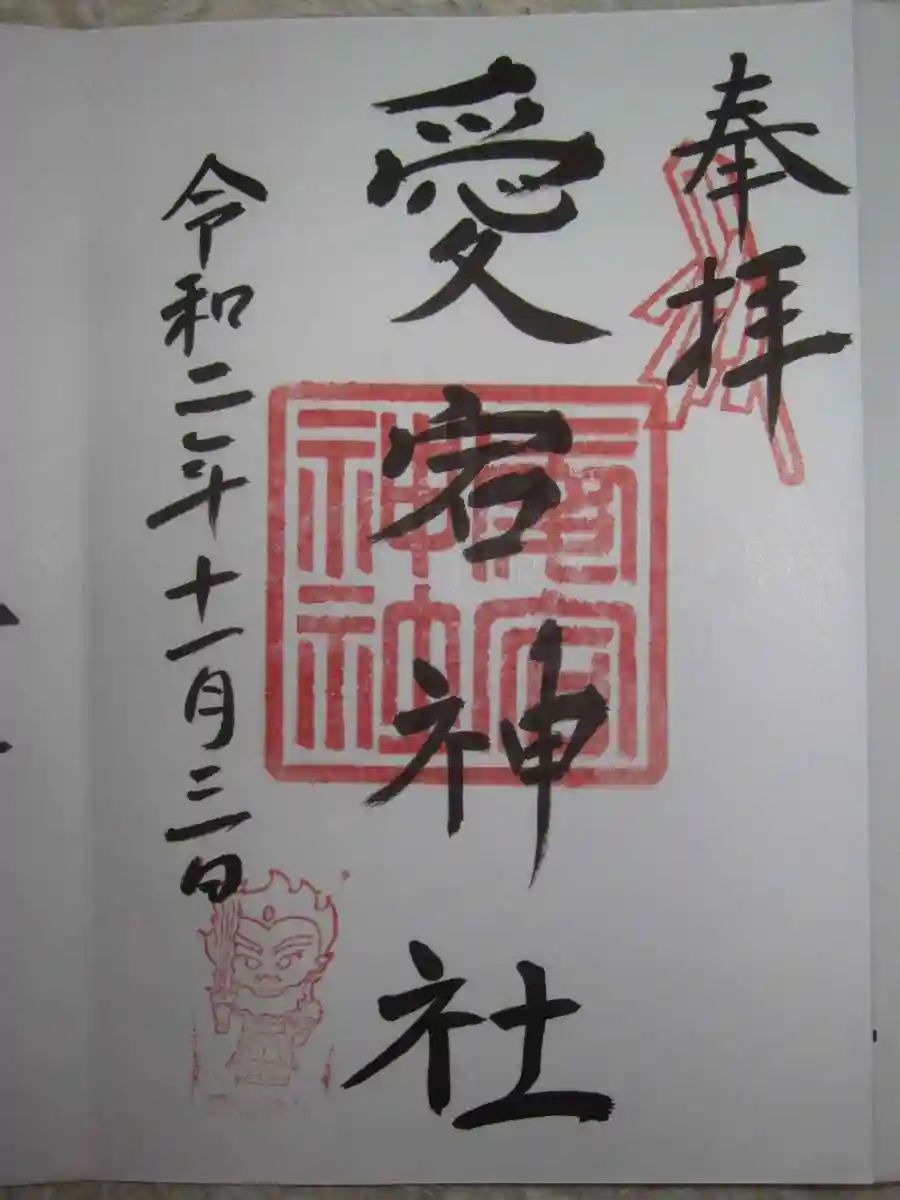 奉拝
愛宕神社
愛宕神社
令和二年十一月三日